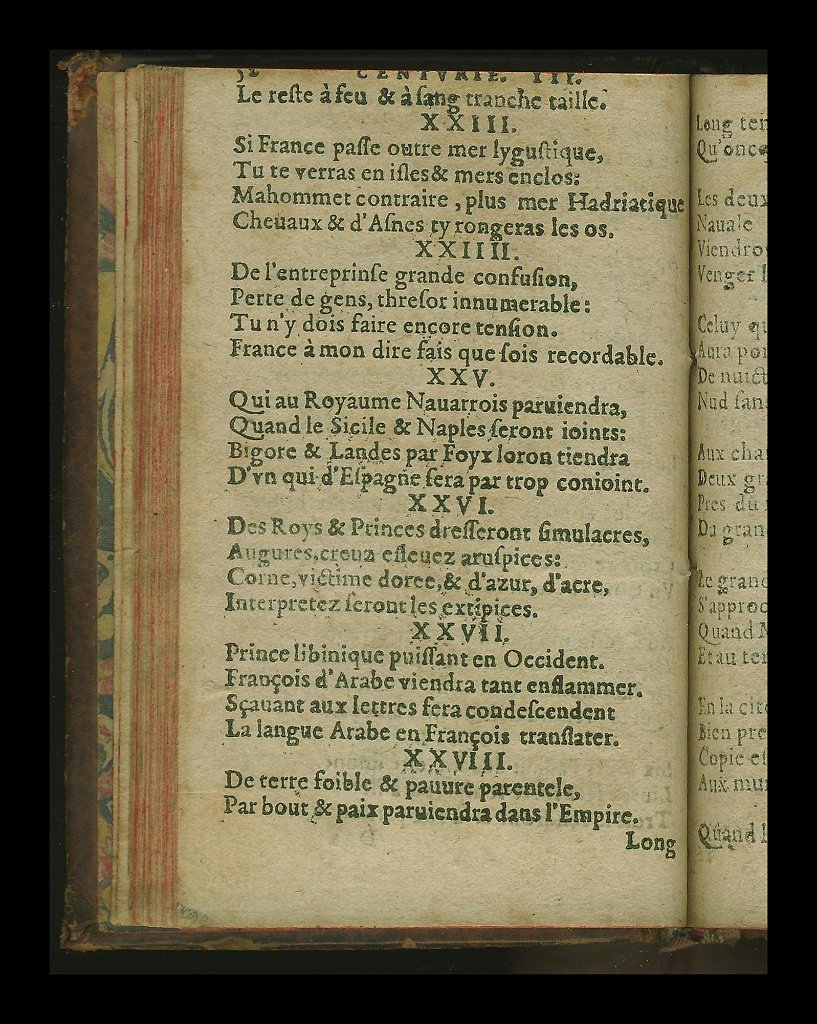 CENTVRIE. III.
Le reſte à feu & à ſang tranche taille.
XXIII.
Si France paſſe outre mer lyguſtique,
Tu te verras en iſles & mers enclos:
Mahommet contraire, plus mer Hadriatique
Cheuaux & d'Aſnes ty rongeras les os.
XXIIII.
De l'entreprinſe grande confuſion,
Perte de gens, threſor innumerable:
Tu n'y dois faire encore tenſion.
France à mon dire fais que ſois recordable.
XXV.
Qui au Royaume Nauarrois paruiendra,
Quand le Sicile & Naples ſeront ioints:
Bigore & Landes par Foyx loron tiendra
D'vn qui d'Eſpagne ſera par trop conioint.
XXVI.
Des Roys & Princes dreſſeront ſimulacres,
Augures, creuz eſleuez aruſpices:
Corne, victime doree, & d'azur, d'acre,
Interpretez ſeront les extipices.
XXVII.
Prince libinique puiſſant en Occident.
François d'Arabe viendra tant enflammer.
Sçauant aux lettres ſera condeſcendent
La langue Arabe en François tranſlater.
XXVIII.
De terre foible & pauure parentele,
Par bout & paix paruiendra dans l'Empire.
Long
Long
Qu'onc
Les deux
Nauale
Viendro
Venger
Celuy
Aura
De nuict
Nud
Aux
Deux
Pres du
Du gran
Le grand
S'approc
Quand
Et au
En la
Bien
Copie
Aux
Quand